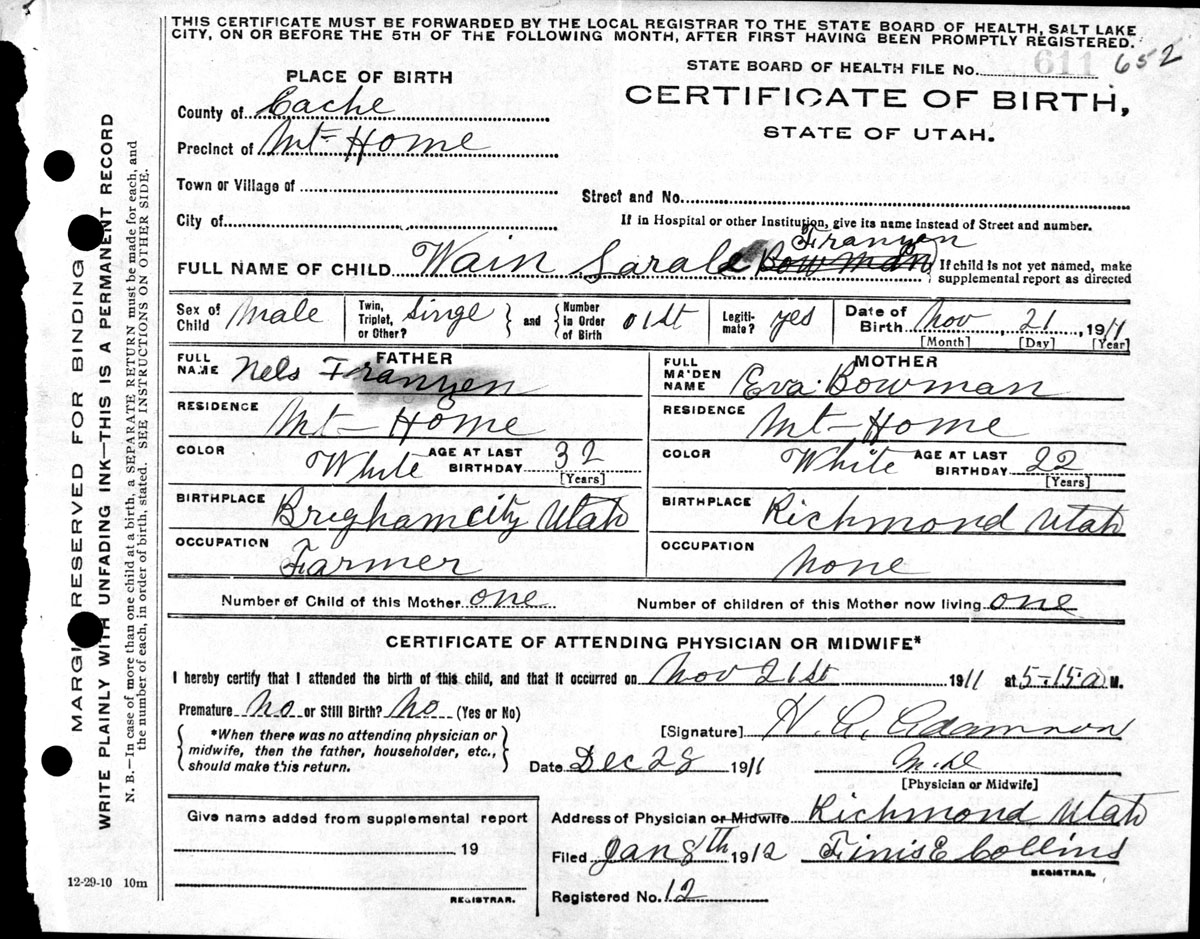 THIS CERTIFICATE MUST BE FORWARDED BY THE LOCAL REGISTRAR TO THE STATE BOARD OF HEALTH, SALT LAKE
CITY, ON OR BEFORE THE 5TH OF THE FOLLOWING MONTH, AFTER FIRST HAVING BEEN PROMPTLY REGISTERED.
STATE BOARD OF HEALTH FILE No. 611 652
PLACE OF BIRTH
CERTIFICATE OF BIRTH,
STATE OF UTAH.
County of Cache
Precinct of Mt- Home
Town or Village of
Street and No.
City of
If in Hospital or other Institution, give its name instead of Street and number.
Franzen
FULL NAME OF CHILD Wain Bowman
If child is not yet named, make
supplemental report as directed
Sex of Child Male
Twin, Triplet, or Other? Singe
and
Number in Order of Birth 01st
Legiti- mate? yes
Date of Birth Nov, 21, 1911
[Month] [Day] [Year]
FATHER
FULL NAME Nels Franzen
RESIDENCE Mt- Home
COLOR White
AGE AT LAST BIRTHDAY 32
[Years]
BIRTHPLACE Brigham city Utah
OCCUPATION Farmer
MOTHER
FULL MAIDEN NAME Eva Bowman
RESIDENCE Mt- Home
COLOR White
AGE AT LAST BIRTHDAY 22
[Years]
BIRTHPLACE Richmond Utah
OCCUPATION None
Number of Child of this Mother one
Number of children of this Mother now living one
CERTIFICATE OF ATTENDING PHYSICIAN OR MIDWIFE*
I hereby certify that I attended the birth of this child, and that it occurred on Nov 21st 1911 at 5-15 a M.
Premature No or Still Birth? No (Yes or No)
*When there was no attending physician or
midwife, then the father, householder, etc.,
should make this return.
[Signature] H. A. Adamson
Date Dec 28 1911
M.D
[Physician or Midwife]
Give name added from supplemental report
19
REGISTRAR.
Address of Physician or Midwife Richmond Utah
Filed Jan 8th 1912 Finis E Collins
REGISTRAR.
Registered No. 12
12-29-10 10m
MARGIN RESERVED FOR BINDING
WRITE PLAINLY WITH UNFADING INK—THIS IS A PERMANENT RECORD
N. B.—In case of more than one child at a birth, a SEPARATE RETURN must be made for each, and
the number of each, in order of birth, stated. SEE INSTRUCTIONS ON OTHER SIDE.